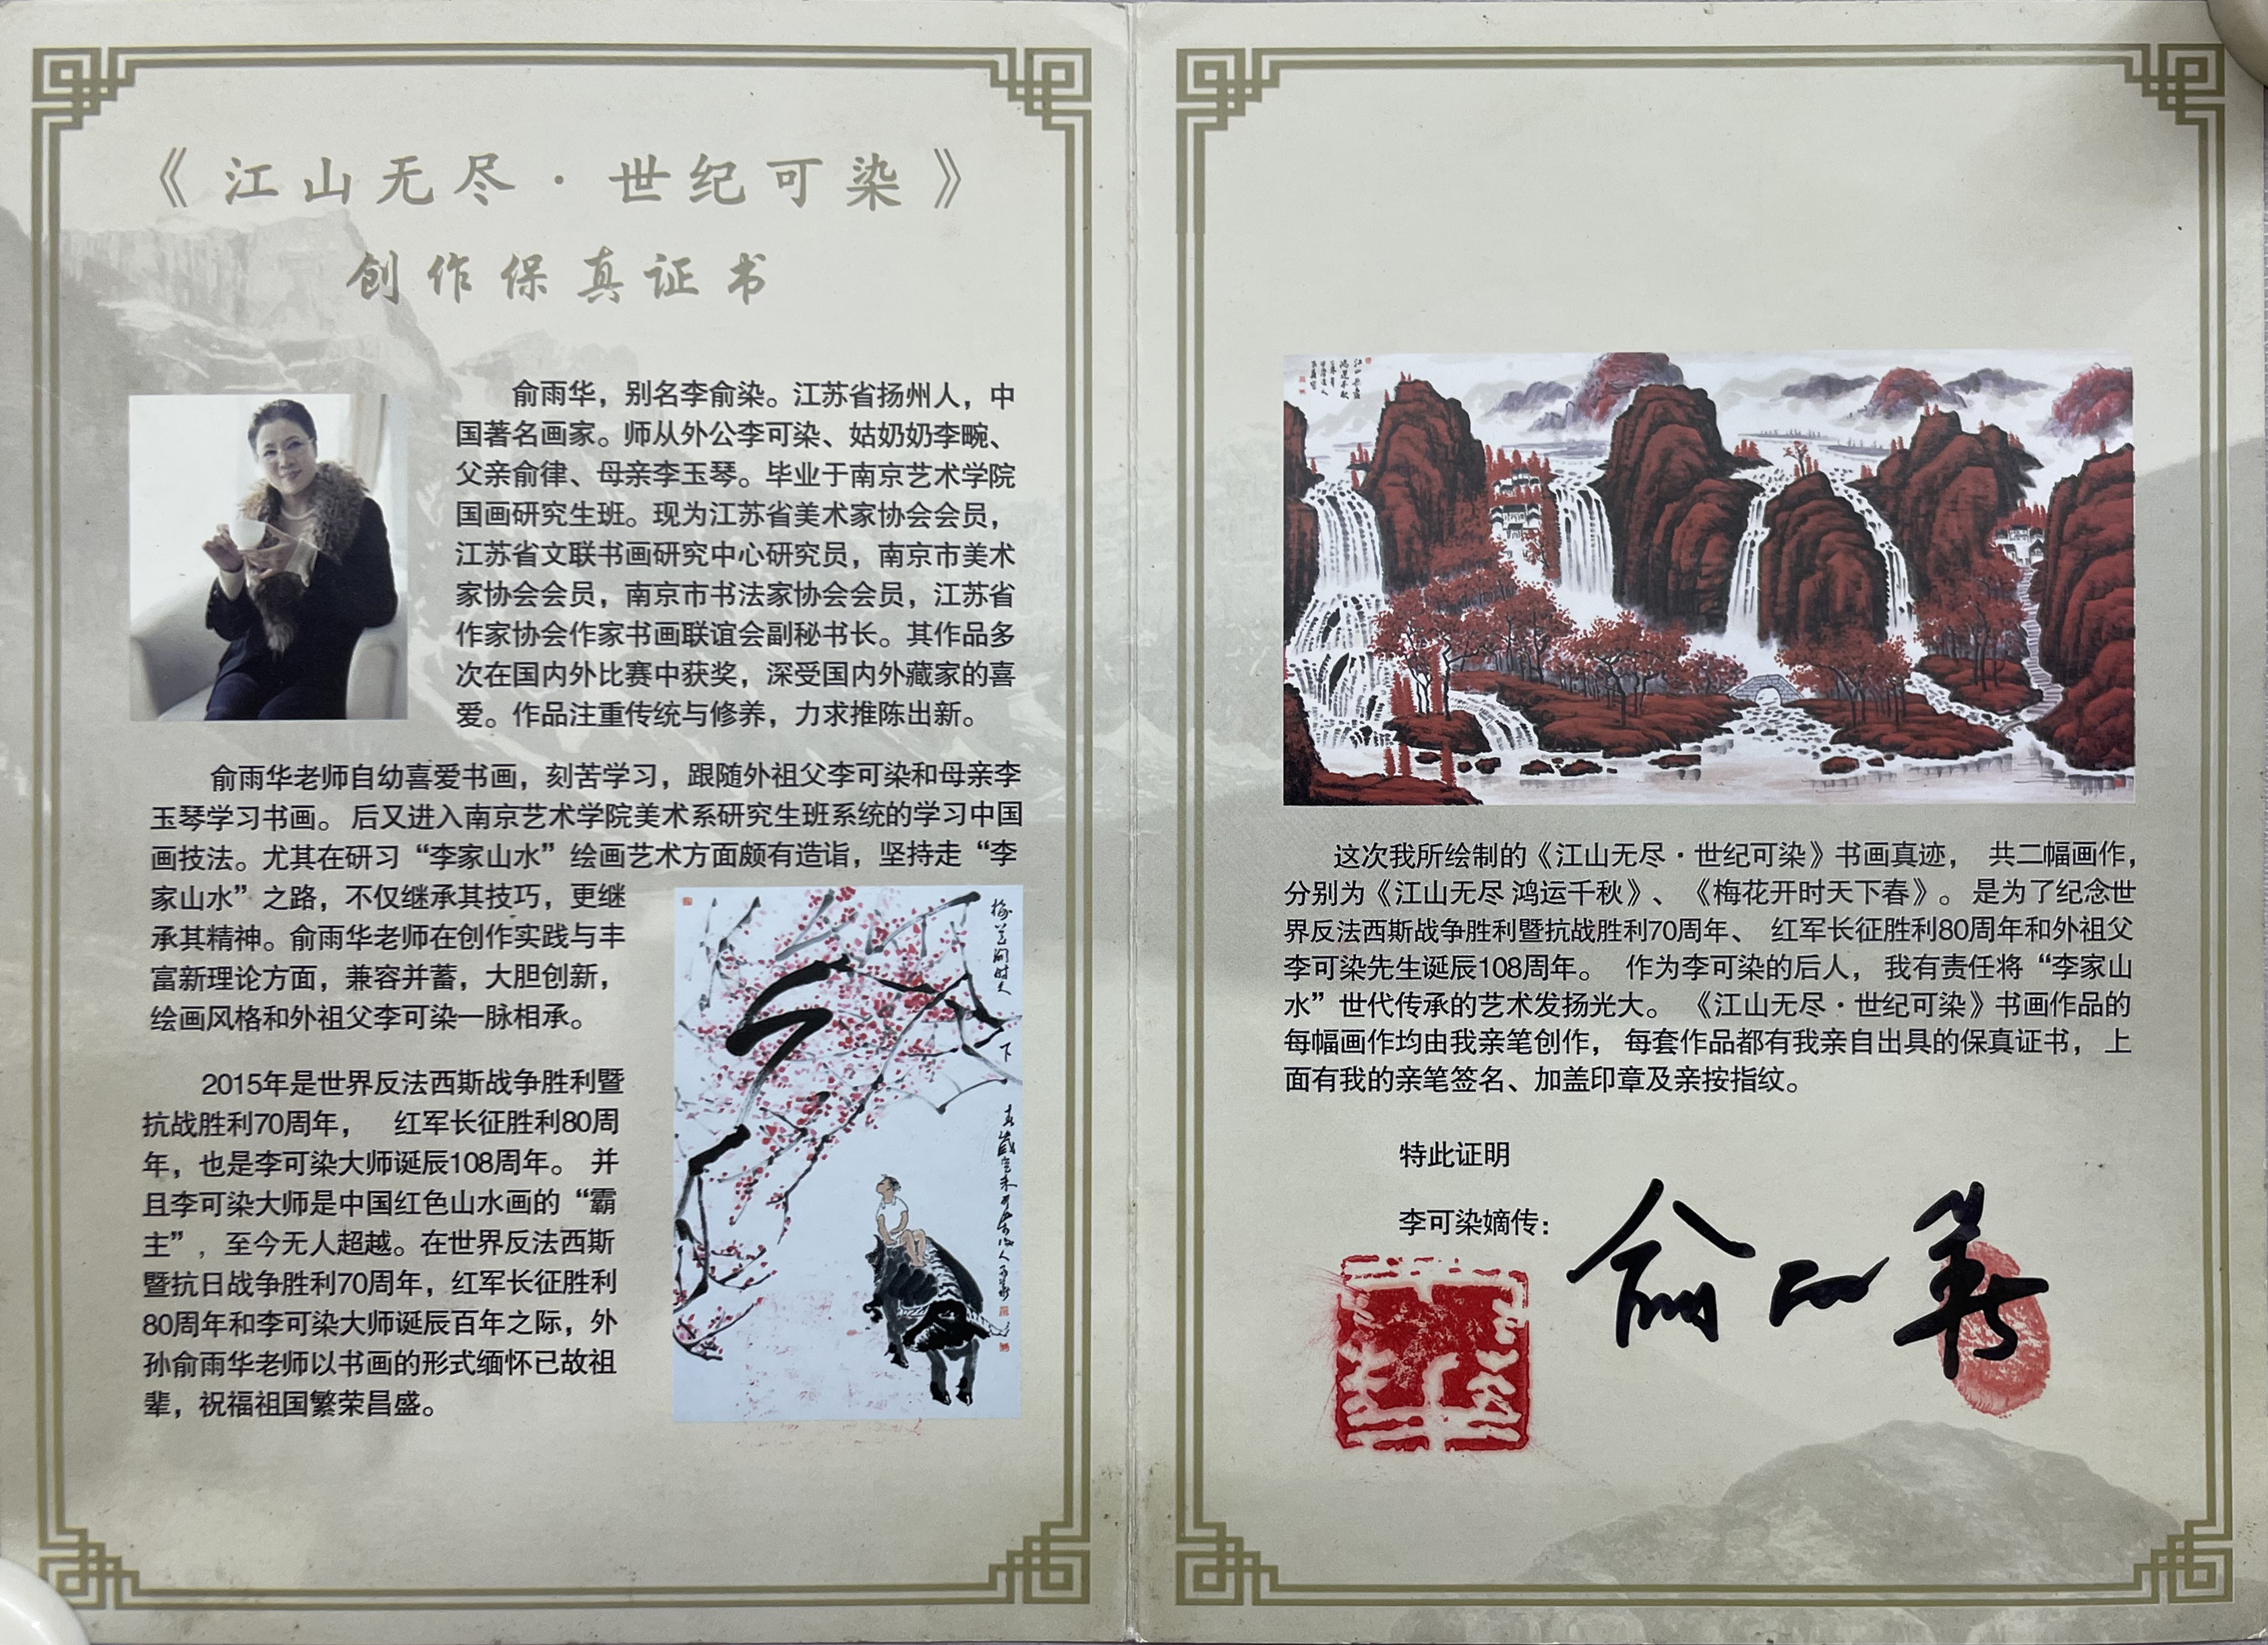 《江山无尽·世纪可染》
创作保真证书
俞雨华，别名李俞染。江苏省扬州人，中
国著名画家。师从外公李可染、姑奶奶李畹、
父亲俞律、母亲李玉琴。毕业于南京艺术学院
国画研究生班。现为江苏省美术家协会会员，
江苏省文联书画研究中心研究员，南京市美术
家协会会员，南京市书法家协会会员，江苏省
作家协会作家书画联谊会副秘书长。其作品多
次在国内外比赛中获奖，深受国内外藏家的喜
爱。作品注重传统与修养，力求推陈出新。
俞雨华老师自幼喜爱书画，刻苦学习，跟随外祖父李可染和母亲李
玉琴学习书画。后又进入南京艺术学院美术系研究生班系统的学习中国
画技法。尤其在研习“李家山水”绘画艺术方面颇有造诣，坚持走“李
家山水”之路，不仅继承其技巧，更继
承其精神。俞雨华老师在创作实践与丰
富新理论方面，兼容并蓄，大胆创新，
绘画风格和外祖父李可染一脉相承。
2015年是世界反法西斯战争胜利暨
抗战胜利70周年， 红军长征胜利80周
年，也是李可染大师诞辰108周年。 并
且李可染大师是中国红色山水画的“霸
主”，至今无人超越。在世界反法西斯
暨抗日战争胜利70周年，红军长征胜利
80周年和李可染大师诞辰百年之际，外
孙俞雨华老师以书画的形式缅怀已故祖
辈，祝福祖国繁荣昌盛。
梅花开时天
下
春
这次我所绘制的《江山无尽·世纪可染》书画真迹， 共二幅画作，
分别为《江山无尽 鸿运千秋》、《梅花开时天下春》。是为了纪念世
界反法西斯战争胜利暨抗战胜利70周年、 红军长征胜利80周年和外祖父
李可染先生诞辰108周年。 作为李可染的后人， 我有责任将“李家山
水”世代传承的艺术发扬光大。《江山无尽·世纪可染》书画作品的
每幅画作均由我亲笔创作， 每套作品都有我亲自出具的保真证书，上
面有我的亲笔签名、加盖印章及亲按指纹。
特此证明
李可染嫡传：
俞雨华